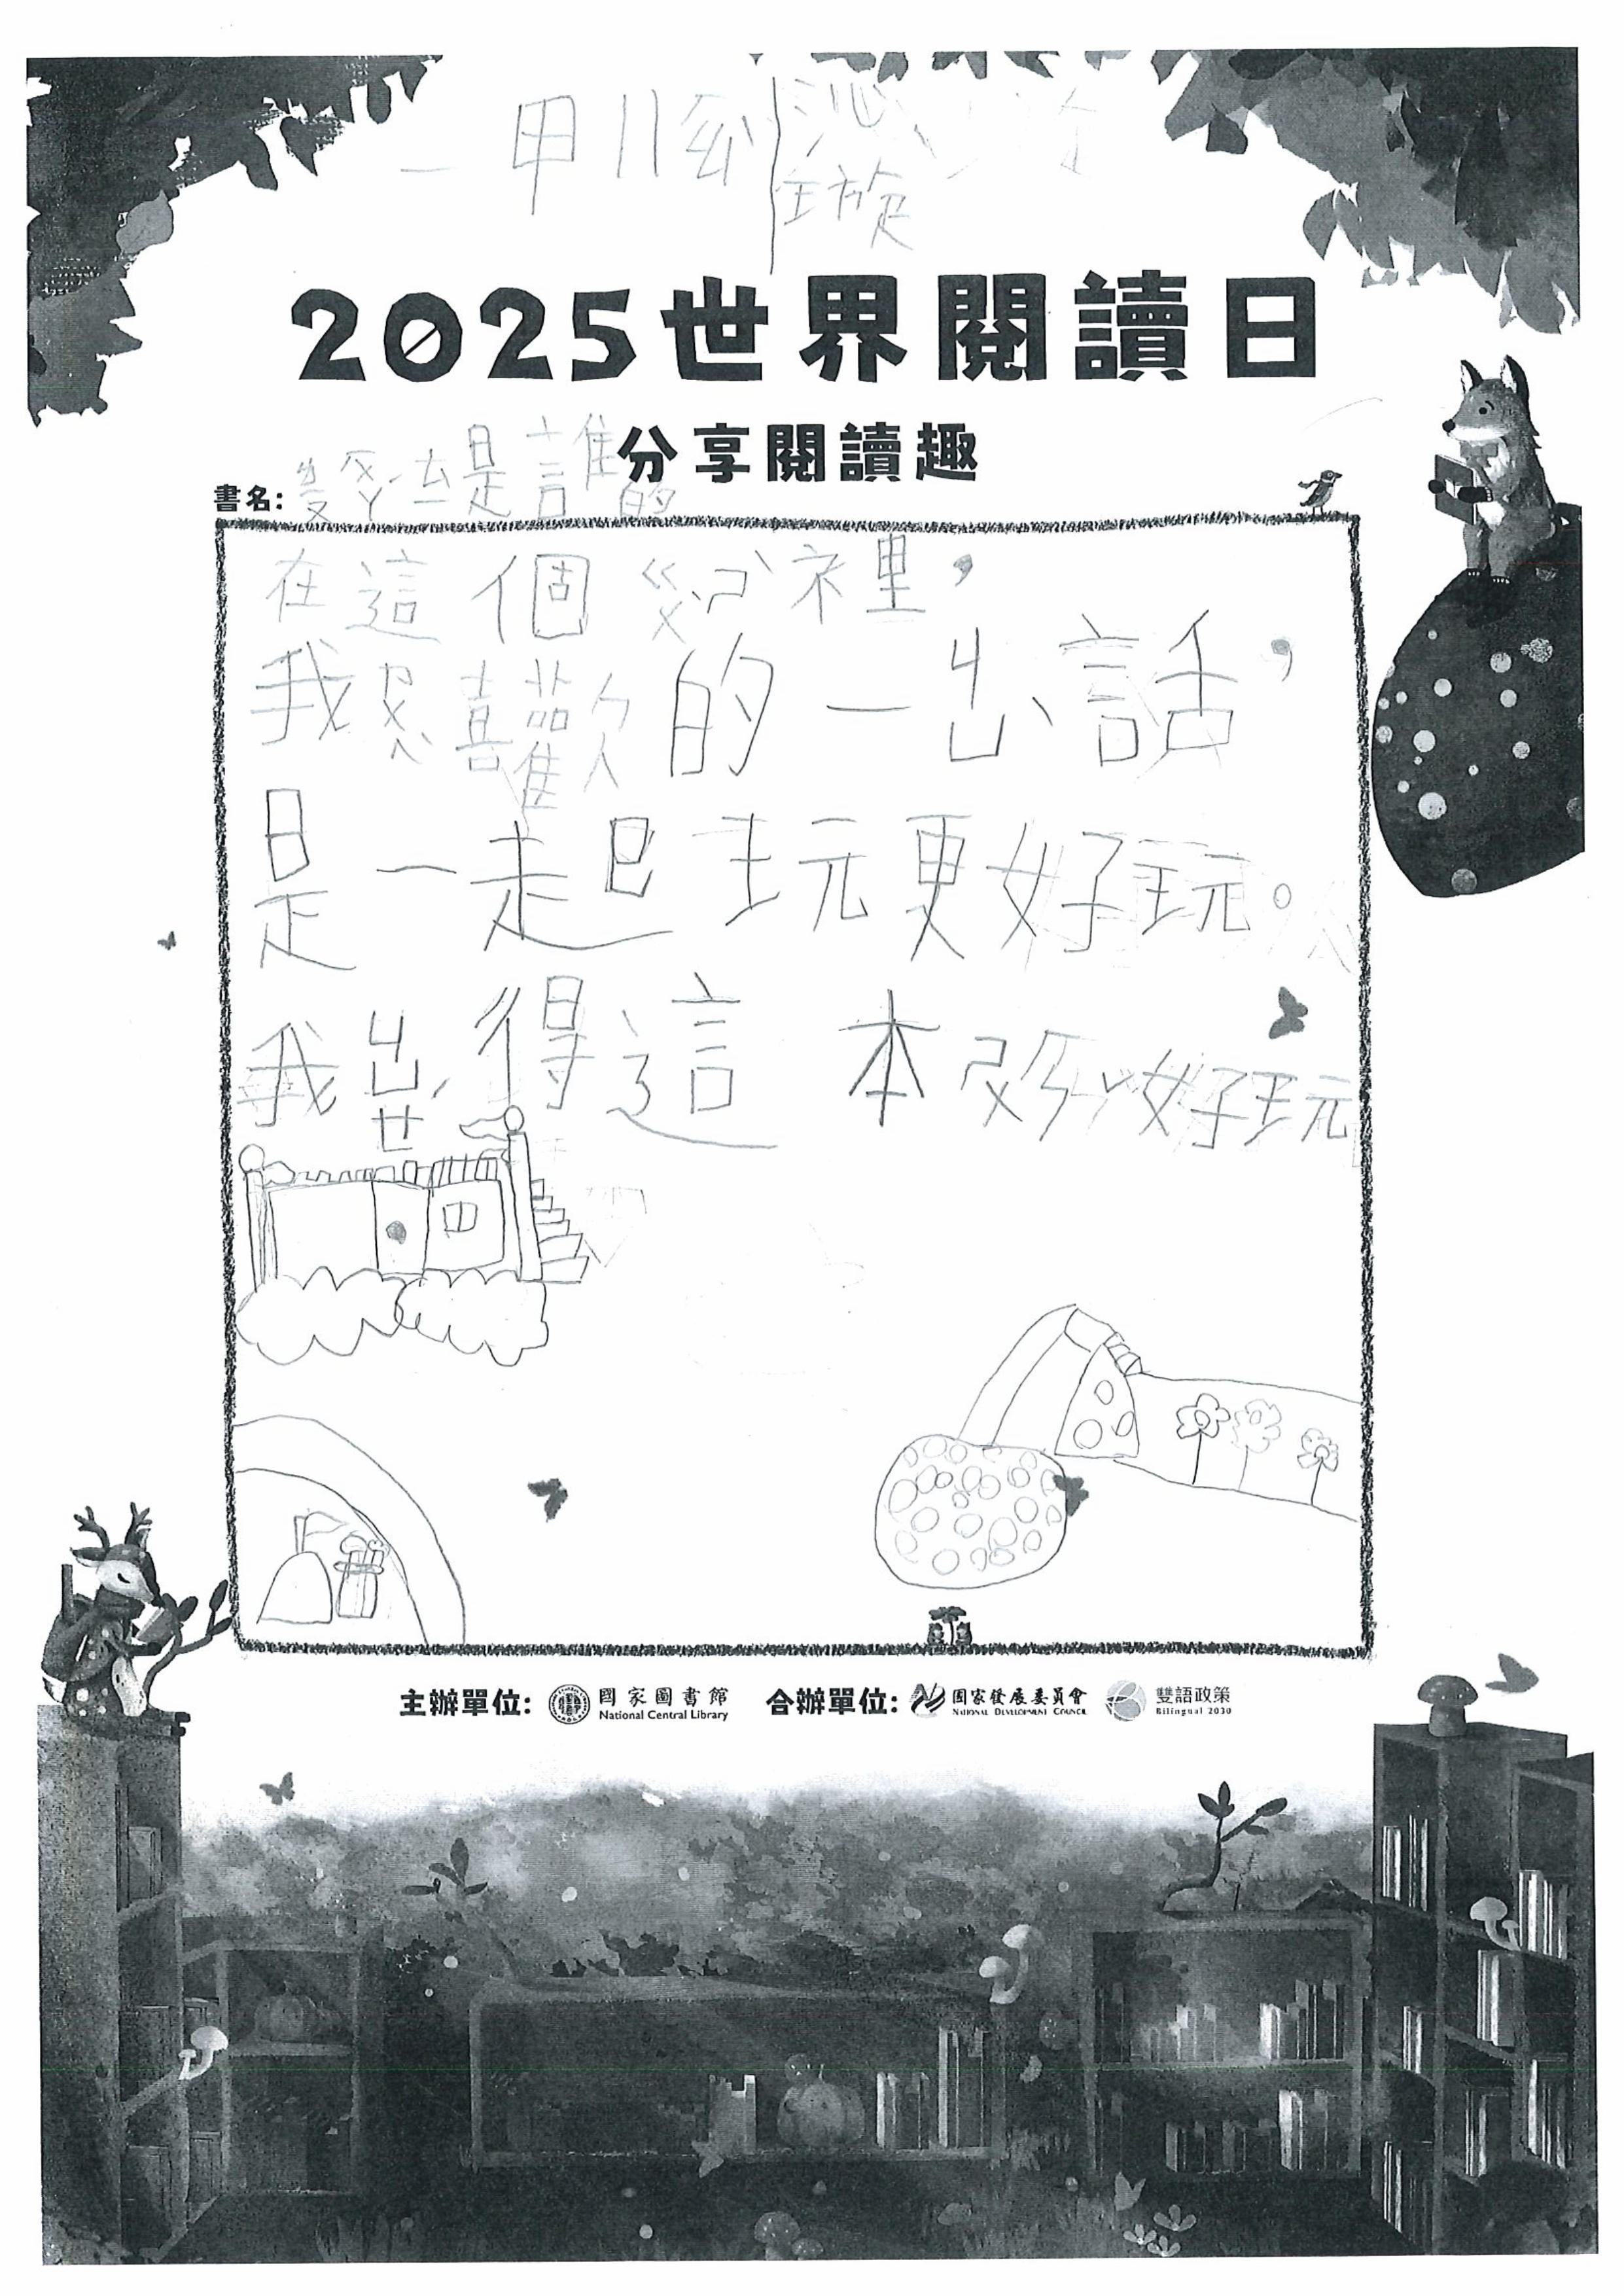 一甲 11 劉沁璇
2025世界閱讀日
分享閱讀趣
書名:
是誰的
在這個ㄍㄨˋㄕˋ裡，
我ㄗㄨㄟˋ喜歡的一ㄐㄩˋ話，
是一起玩更好玩。
我ㄐㄩㄝˊ得這本ㄕㄨ好玩
主辦單位: 國家圖書館 National Central Library 合辦單位: 國家發展委員會 NATIONAL DEVELOPMENT COUNCIL 雙語政策 Bilingual 2030